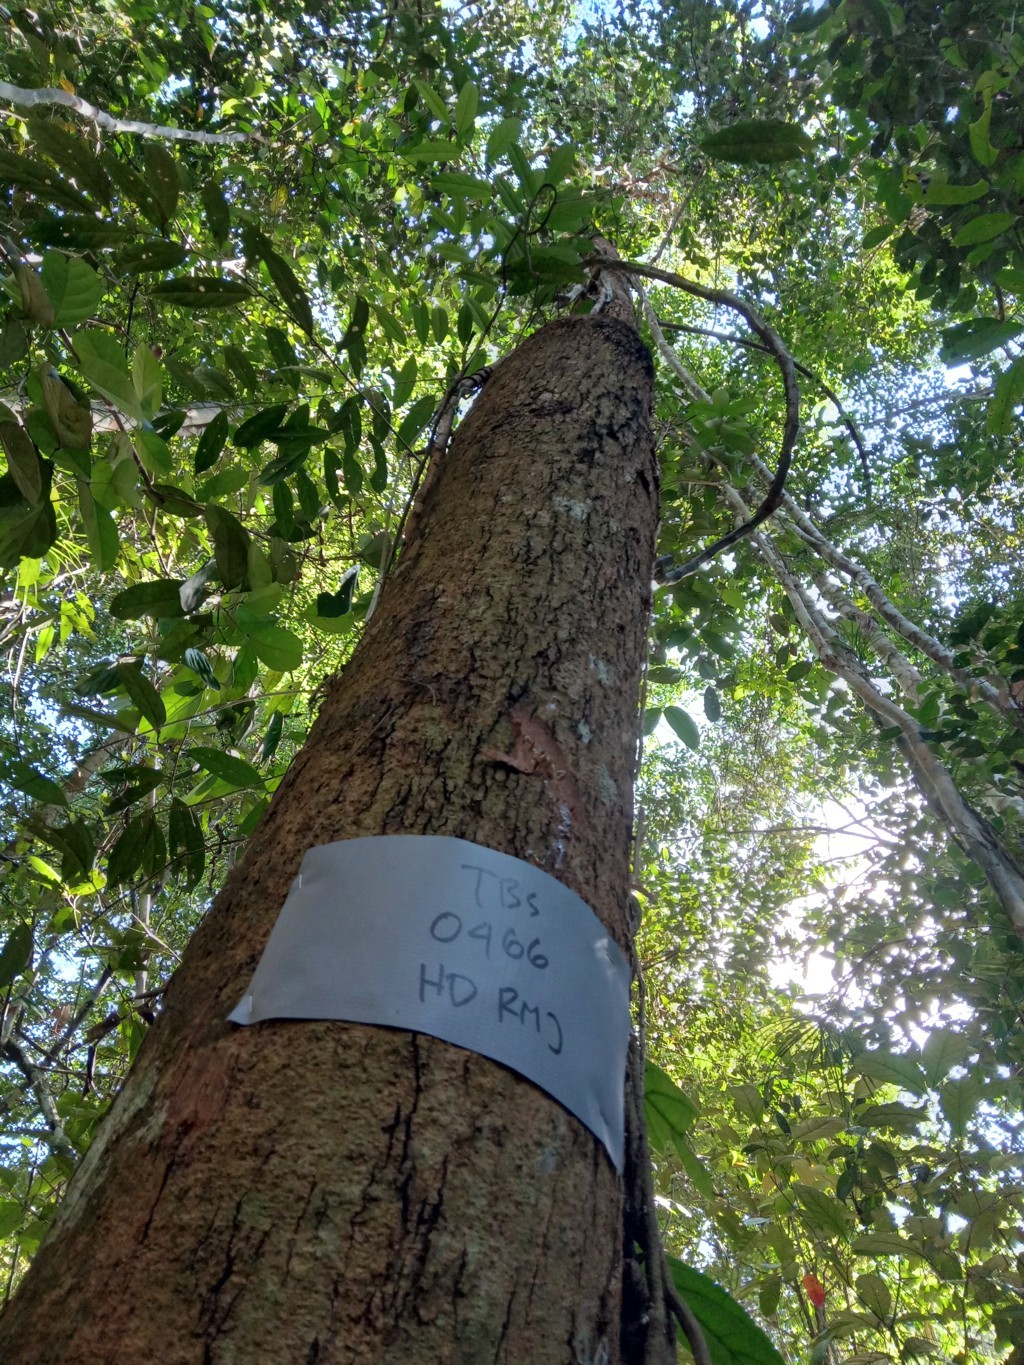 TBS
0466
HD RMJ